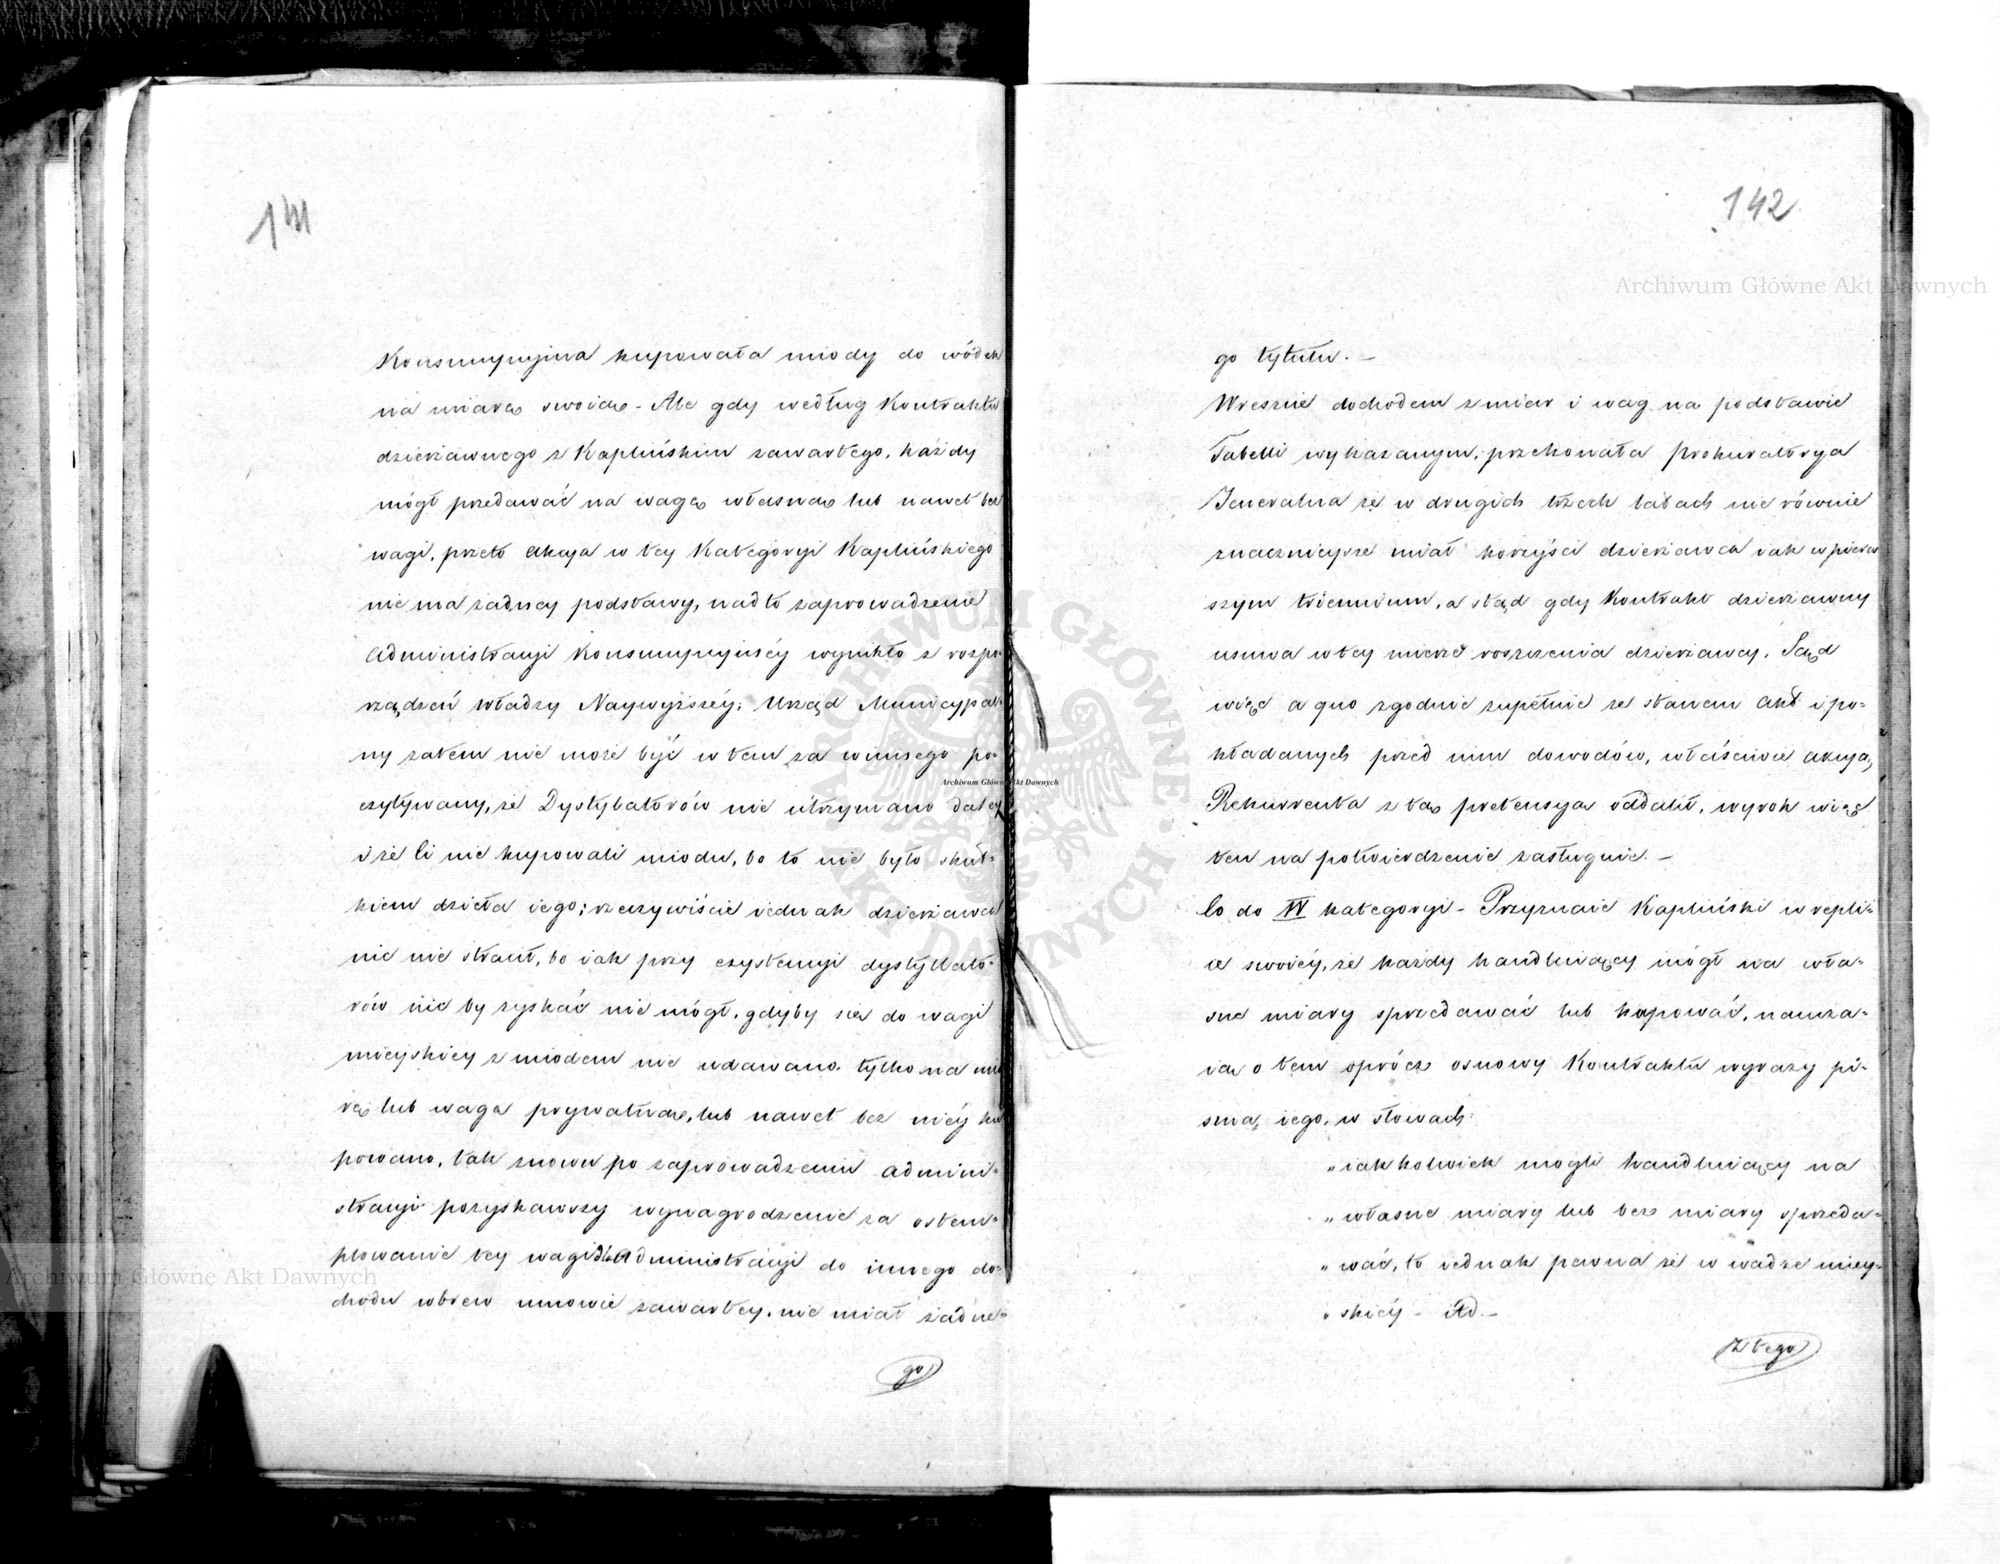 141
Konsumpcyjna kupowała miody do wódek
na miarę swoią - Ale gdy według Kontraktu
dzierżawnego z Kaplińskim zawartego, każdy
mógł przedawać na wagę własną lub nawet bez
wagi, przeto akcya w tey Kategoryi Kaplińskiego
nie ma żadney podstawy, nadto zaprowadzenie
Administracyi Konsumpcyjnéy wynikło z rozpo-
rządzeń władzy Naywyższéy; Urząd Municypal-
ny zatem nie może być w tem za winnego po-
czytywany, że Dystylatorów nie utrzymano daléy
i że Ci nie kupowali miodu, bo to nie było skut-
kiem dzieła iego; rzeczywiście iednak dzierżawca
nic nie stracił, bo iak przy czystencyi dystyllato-
rów nic by zyskać nie mógł, gdyby się do wagi
mieyskiey z miodem nie udawano, tylko na mia
rę lub wagę prywatną, lub nawet bez niéy ku
powano, tak znowu po zaprowadzeniu admini-
stracyi pozyskawszy wynagrodzenie za ostem-
plowanie tey wagi dla Administracyi do innego do-
chodu wbrew umowie zawartey, nie miał żadne-
go
142
go tytułu. -
Wreszcie dochodem z miar i wag na podstawie
Tabelli wykazanym, przekonała Prokuratorya
Jeneralna że w drugich trzech latach nie równie
znacznieysze miał korzyści dzierżawca iak w pierw
szym triennium, a stąd gdy Kontrakt dzierżawny
usuwa w tey mierze roszczenia dzierżawcy, Sąd
więc a quo zgodnie zupełnie ze stanem akt i po-
kładanych przed nim dowodów, właściwie akcyą
Rekurrenta z tą pretensyą oddalił, wyrok więc
ten na potwierdzenie zasługuie. -
Co do IV kategoryi - Przyznaie Kapliński w repli-
ce swoiéy, że każdy handluiący mógł na wła-
sne miary sprzedawać lub kupować, naucza-
ią o tem oprócz osnowy Kontraktu wyrazy pi-
sma iego, w słowach:
„iakkolwiek mogli handluiący na
„własne miary lub bez miary sprzeda-
„wać, to iednak pewna że w wadze miey-
„skiéy - itd. -
Z tego
Archiwum Główne Akt Dawnych
Archiwum Główne Akt Dawnych
Archiwum Główne Akt Dawnych
ARCHIWUM GŁÓWNE AKT DAWNYCH